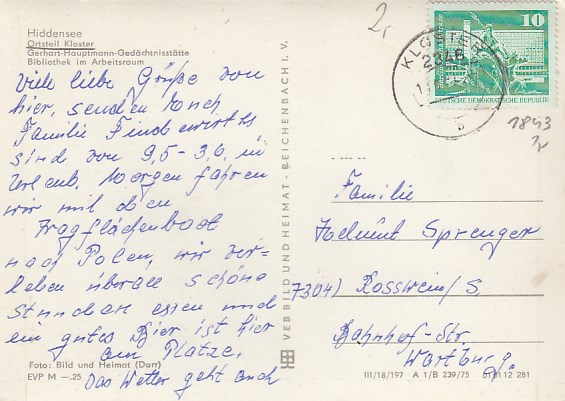 Hiddensee
Ortsteil Kloster
Gerhart-Hauptmann-Gedächtnisstätte
Bibliothek im Arbeitsraum
Viele liebe Grüße von
hier, senden Euch
Familie
sind von 9,5 - 3,6, in
Urlaub. Morgen fahren
wir mit dem
Tragflächenboot
nach Polen, wir ver-
leben überall schöne
Stunden essen und
ein gutes Bier ist hier
am Platze.
Das Wetter geht auch
Foto: Bild und Heimat (Darr)
EVP M —.25
VEB BILD UND HEIMAT · REICHENBACH I. V.
2,
KLOSTER
2346
10
DEUTSCHE DEMOKRATISCHE REPUBLIK
1843
Familie
Helmut Sprenger
7304) Rosswein/S.
Bahnhof-Str
Wartburg.
III/18/197 A 1/B 239/75 01 01 12 281